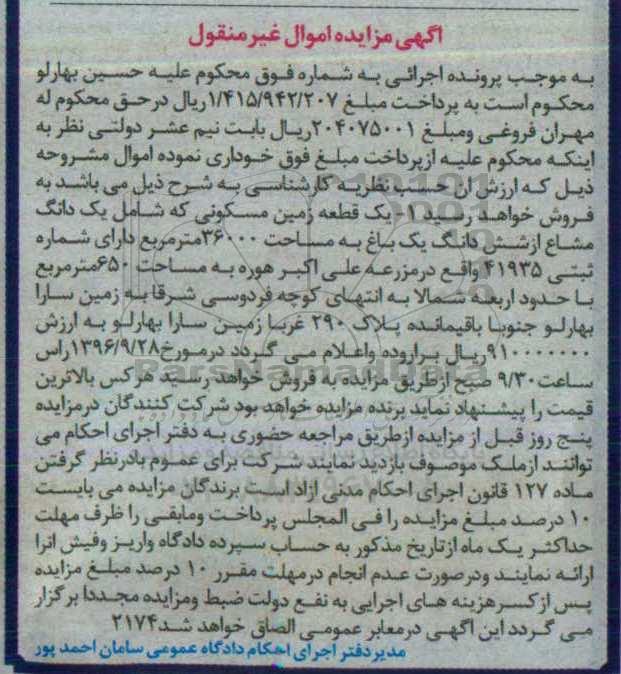 اگهی مزایده اموال غیر منقول
به موجب پرونده اجرائی به شماره فوق محکوم علیه حسین بهارلو
محکوم است به پرداخت مبلغ ۱/۴۱۵/۹۴۲/۲۰۷ ریال درحق محکوم له
مهران فروغی ومبلغ ۲۰۴۰۷۵۰۰۱ ریال بابت نیم عشر دولتی نظر به
اینکه محکوم علیه ازپرداخت مبلغ فوق خوداری نموده اموال مشروحه
ذیل که ارزش ان حسب نظریه کارشناسی به شرح ذیل می باشد به
فروش خواهد رسید ۱- یک قطعه زمین مسکونی که شامل یک دانگ
مشاع ازشش دانگ یک باغ به مساحت ۳۶۰۰۰مترمربع دارای شماره
ثبتی ۴۱۹۳۵ واقع درمزرعه علی اکبر هوره به مساحت ۶۵۰مترمربع
با حدود اربعه شمالا به انتهای کوچه فردوسی شرقا به زمین سارا
بهارلو جنوبا باقیمانده پلاک ۲۹۰ غربا زمین سارا بهارلو به ارزش
۹۱۰۰۰۰۰۰۰۰ریال براروده واعلام می گردد درمورخ۱۳۹۶/۹/۲۸راس
ساعت۹/۳۰ صبح ازطریق مزایده به فروش خواهد رسید هرکس بالاترین
قیمت را پیشنهاد نماید برنده مزایده خواهد بود شرکت کنندگان درمزایده
پنج روز قبل از مزایده ازطریق مراجعه حضوری به دفتر اجرای احکام می
توانند ازملک موصوف بازدید نمایند شرکت برای عموم بادرنظر گرفتن
ماده ۱۲۷ قانون اجرای احکام مدنی ازاد است برندگان مزایده می بایست
۱۰ درصد مبلغ مزایده را فی المجلس پرداخت ومابقی را ظرف مهلت
حداکثر یک ماه ازتاریخ مذکور به حساب سپرده دادگاه واریز وفیش انرا
ارائه نمایند ودرصورت عدم انجام درمهلت مقرر ۱۰ درصد مبلغ مزایده
پس ازکسرهزینه های اجرایی به نفع دولت ضبط ومزایده مجددا برگزار
می گردد این اگهی درمعابر عمومی الصاق خواهد شد ۲۱۷۴
مدیردفتر اجرای احکام دادگاه عمومی سامان احمد پور
ParsNamadData